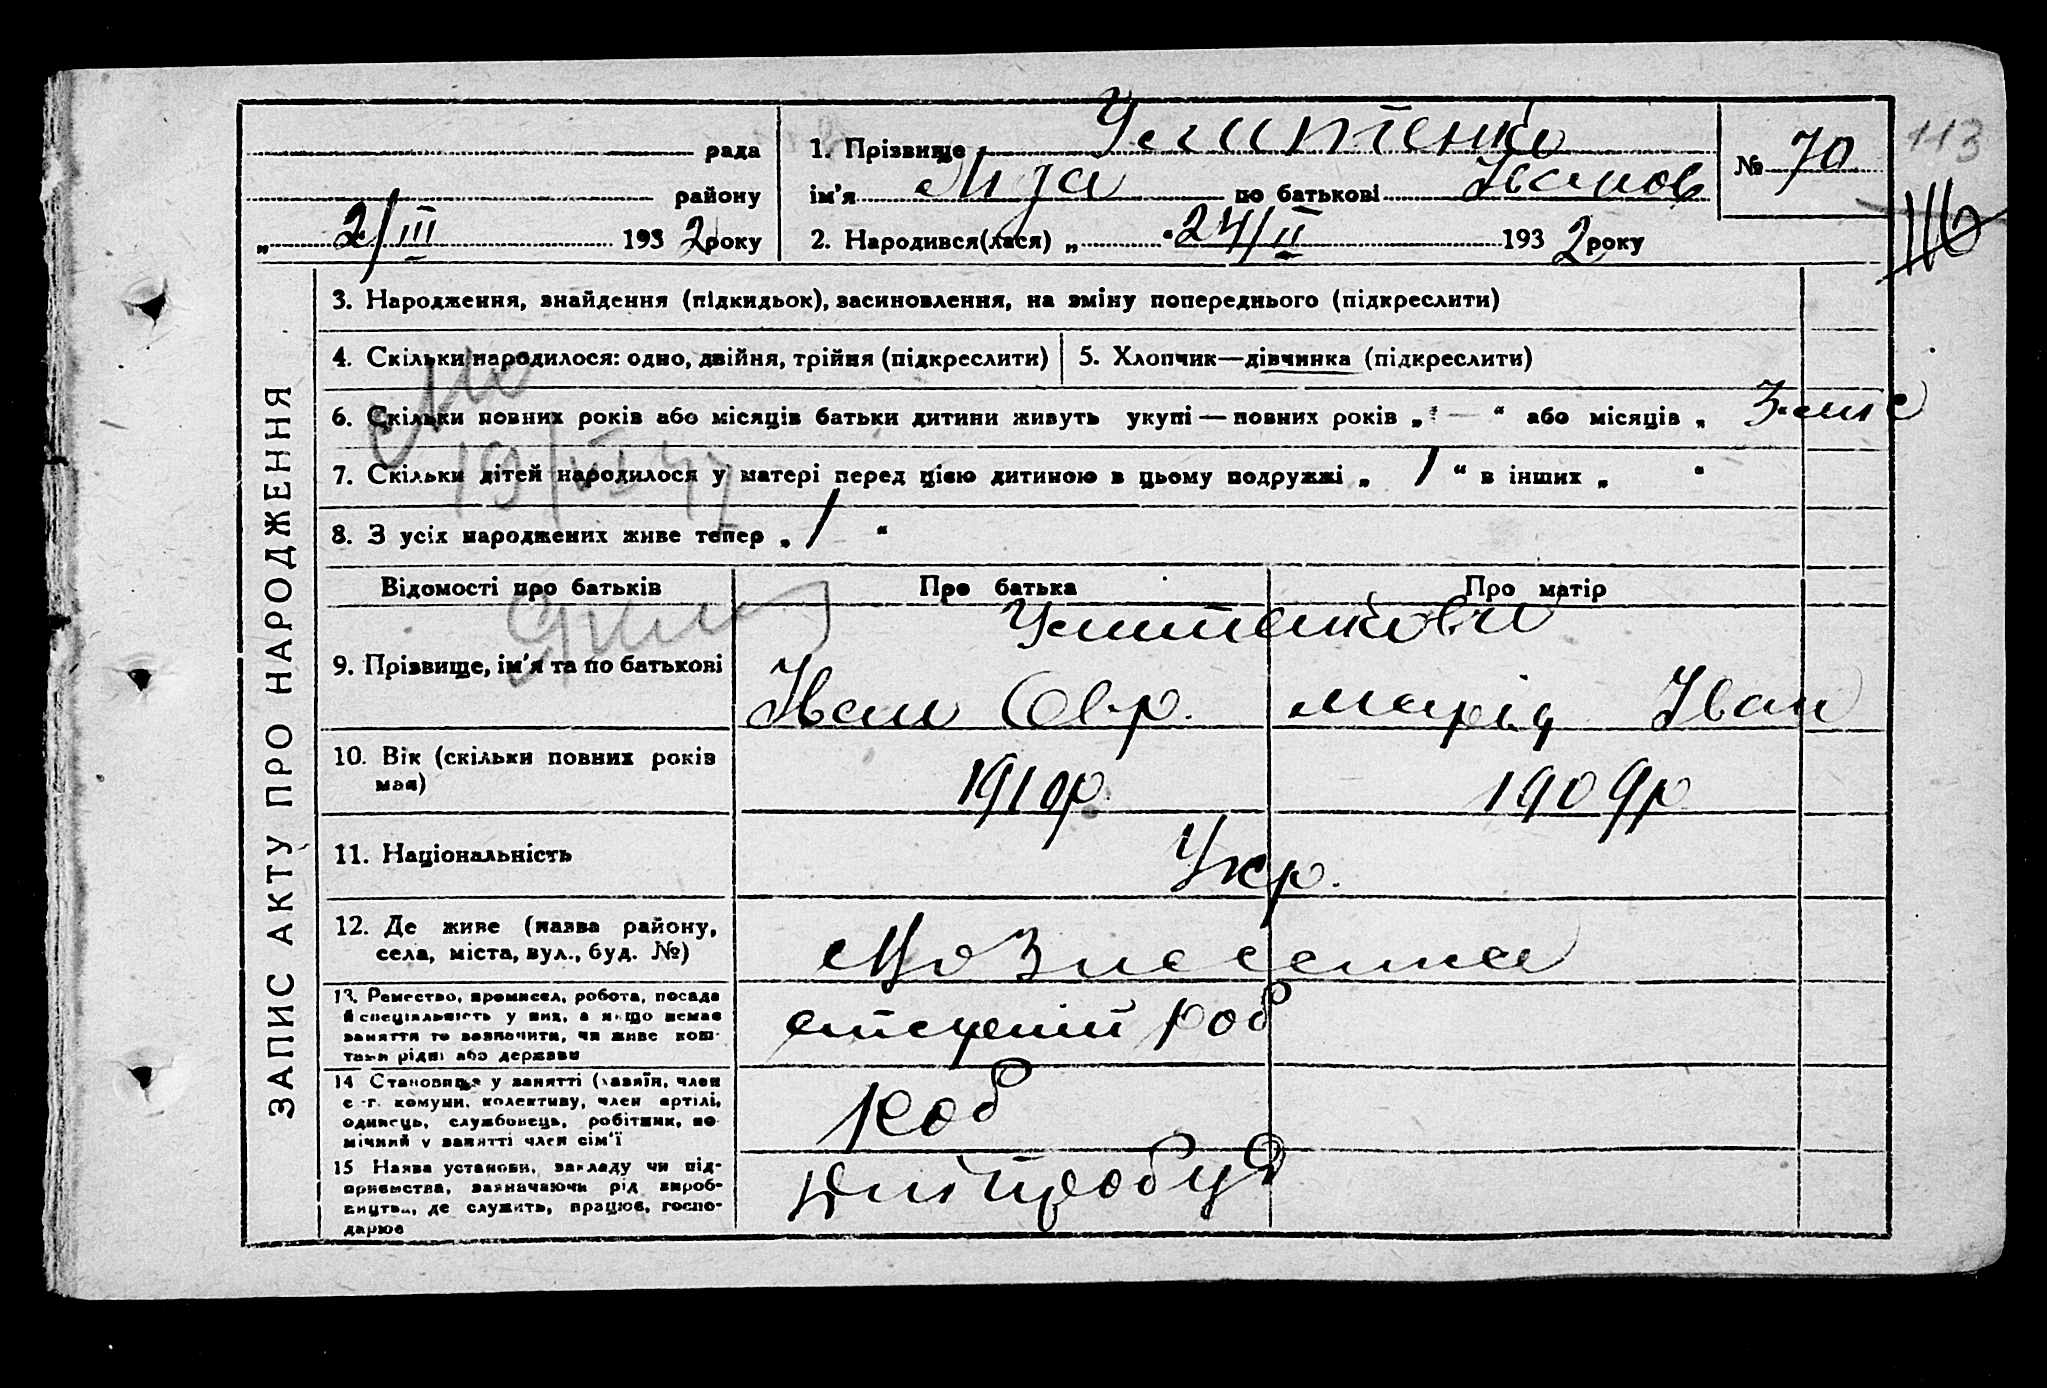 рада
района
1. Прізвище
№ 70
113
району
ім'я Ліда по батькові Іванов
116
„ 2/III 1932 року
2. Народився(лася) „ 24/II 1932 року
ЗАПИС АКТУ ПРО НАРОДЖЕННЯ
3. Народження, знайдення (підкидьок), засиновлення, на зміну попереднього (підкреслити)
4. Скільки народилося: одно, двійня, трійня (підкреслити) 5. Хлопчик—дівчинка (підкреслити)
6. Скільки повних років або місяців батьки дитини живуть укупі — повних років „ — “ або місяців „
7. Скільки дітей народилося у матері перед цією дитиною в цьому подружжі „ 1 “ в інших „ “
19/VI 47
8. З усіх народжених живе тепер „ 1 “
Відомості про батьків Про батька Про матір
9. Прізвище, ім'я та по батькові
Іван Овр. Марія Іван
10. Вік (скільки повних років
має)
1910р 1909р
11. Національність Укр.
12. Де живе (назва району,
села, міста, вул., буд. №)
Вознесенка
13. Ремество, промисел, робота, посада
й спеціальність у них, а якщо немає
заняття то зазначити, чи живе кош-
тами рідні або держави
роб
14 Становище у занятті (хазяїн, член
с.-г. комуни, колективу, член артілі,
одинець, службовець, робітник, по-
мічний у занятті член сім'ї
Роб
15 Назва установи, закладу чи під-
приємства, зазначаючи рід вироб-
ництва, де служить, працює, госпо-
дарює
Дніпробуд